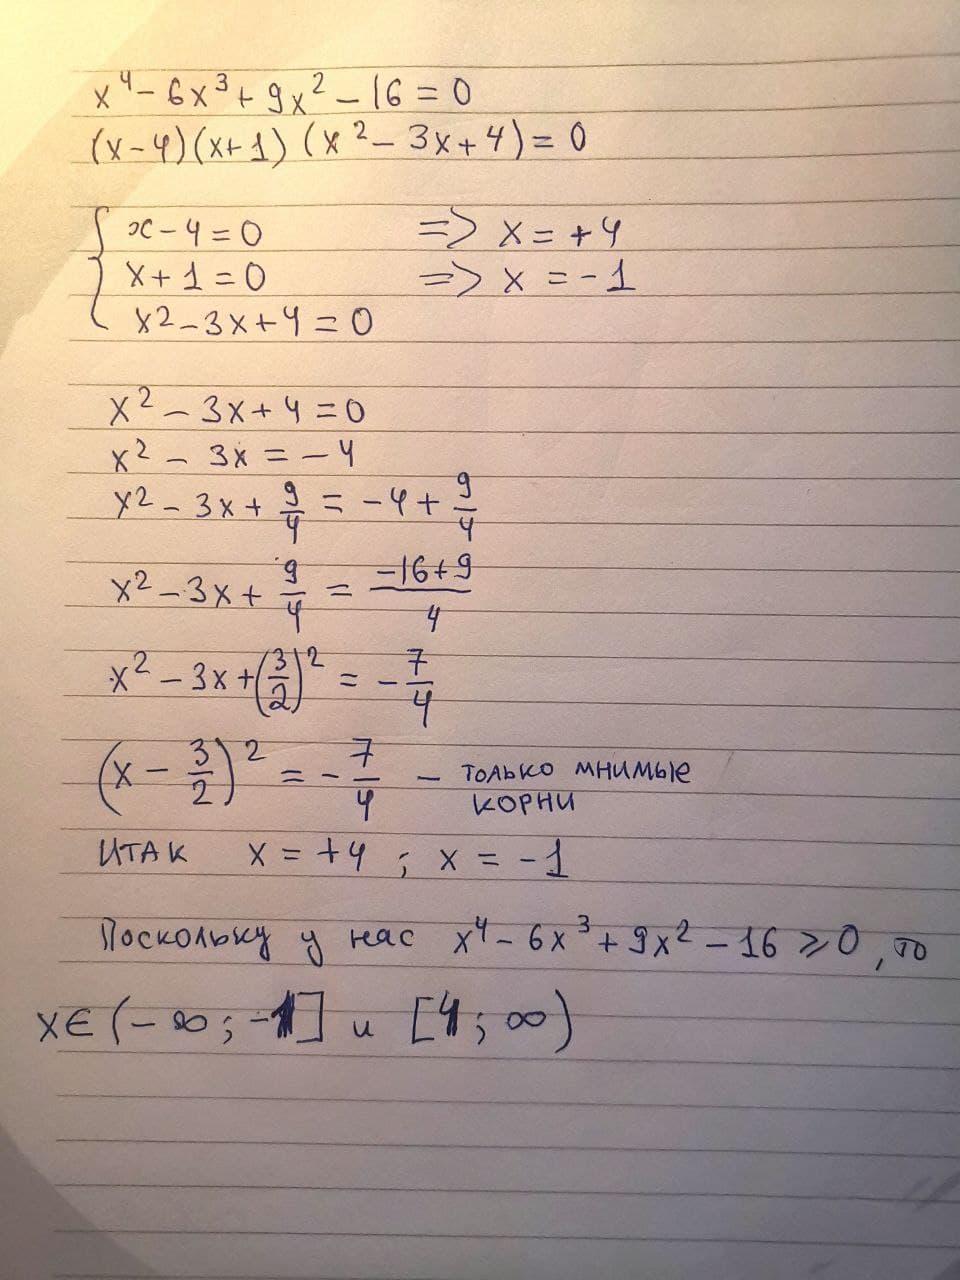 x⁴ - 6x³ + 9x² - 16 = 0
(x-4)(x+1)(x² - 3x+4) = 0
{ x - 4 = 0 => x = +4
x + 1 = 0 => x = -1
x² - 3x + 4 = 0
x² - 3x + 4 = 0
x² - 3x = - 4
x² - 3x + 9/4 = -4 + 9/4
x² - 3x + 9/4 = (-16+9)/4
x² - 3x + (3/2)² = - 7/4
(x - 3/2)² = - 7/4 - только мнимые
корни
Итак x = +4 ; x = -1
Поскольку у нас x⁴ - 6x³ + 9x² - 16 ⩾ 0, то
x∈ (- ∞; -1] и [4; ∞)